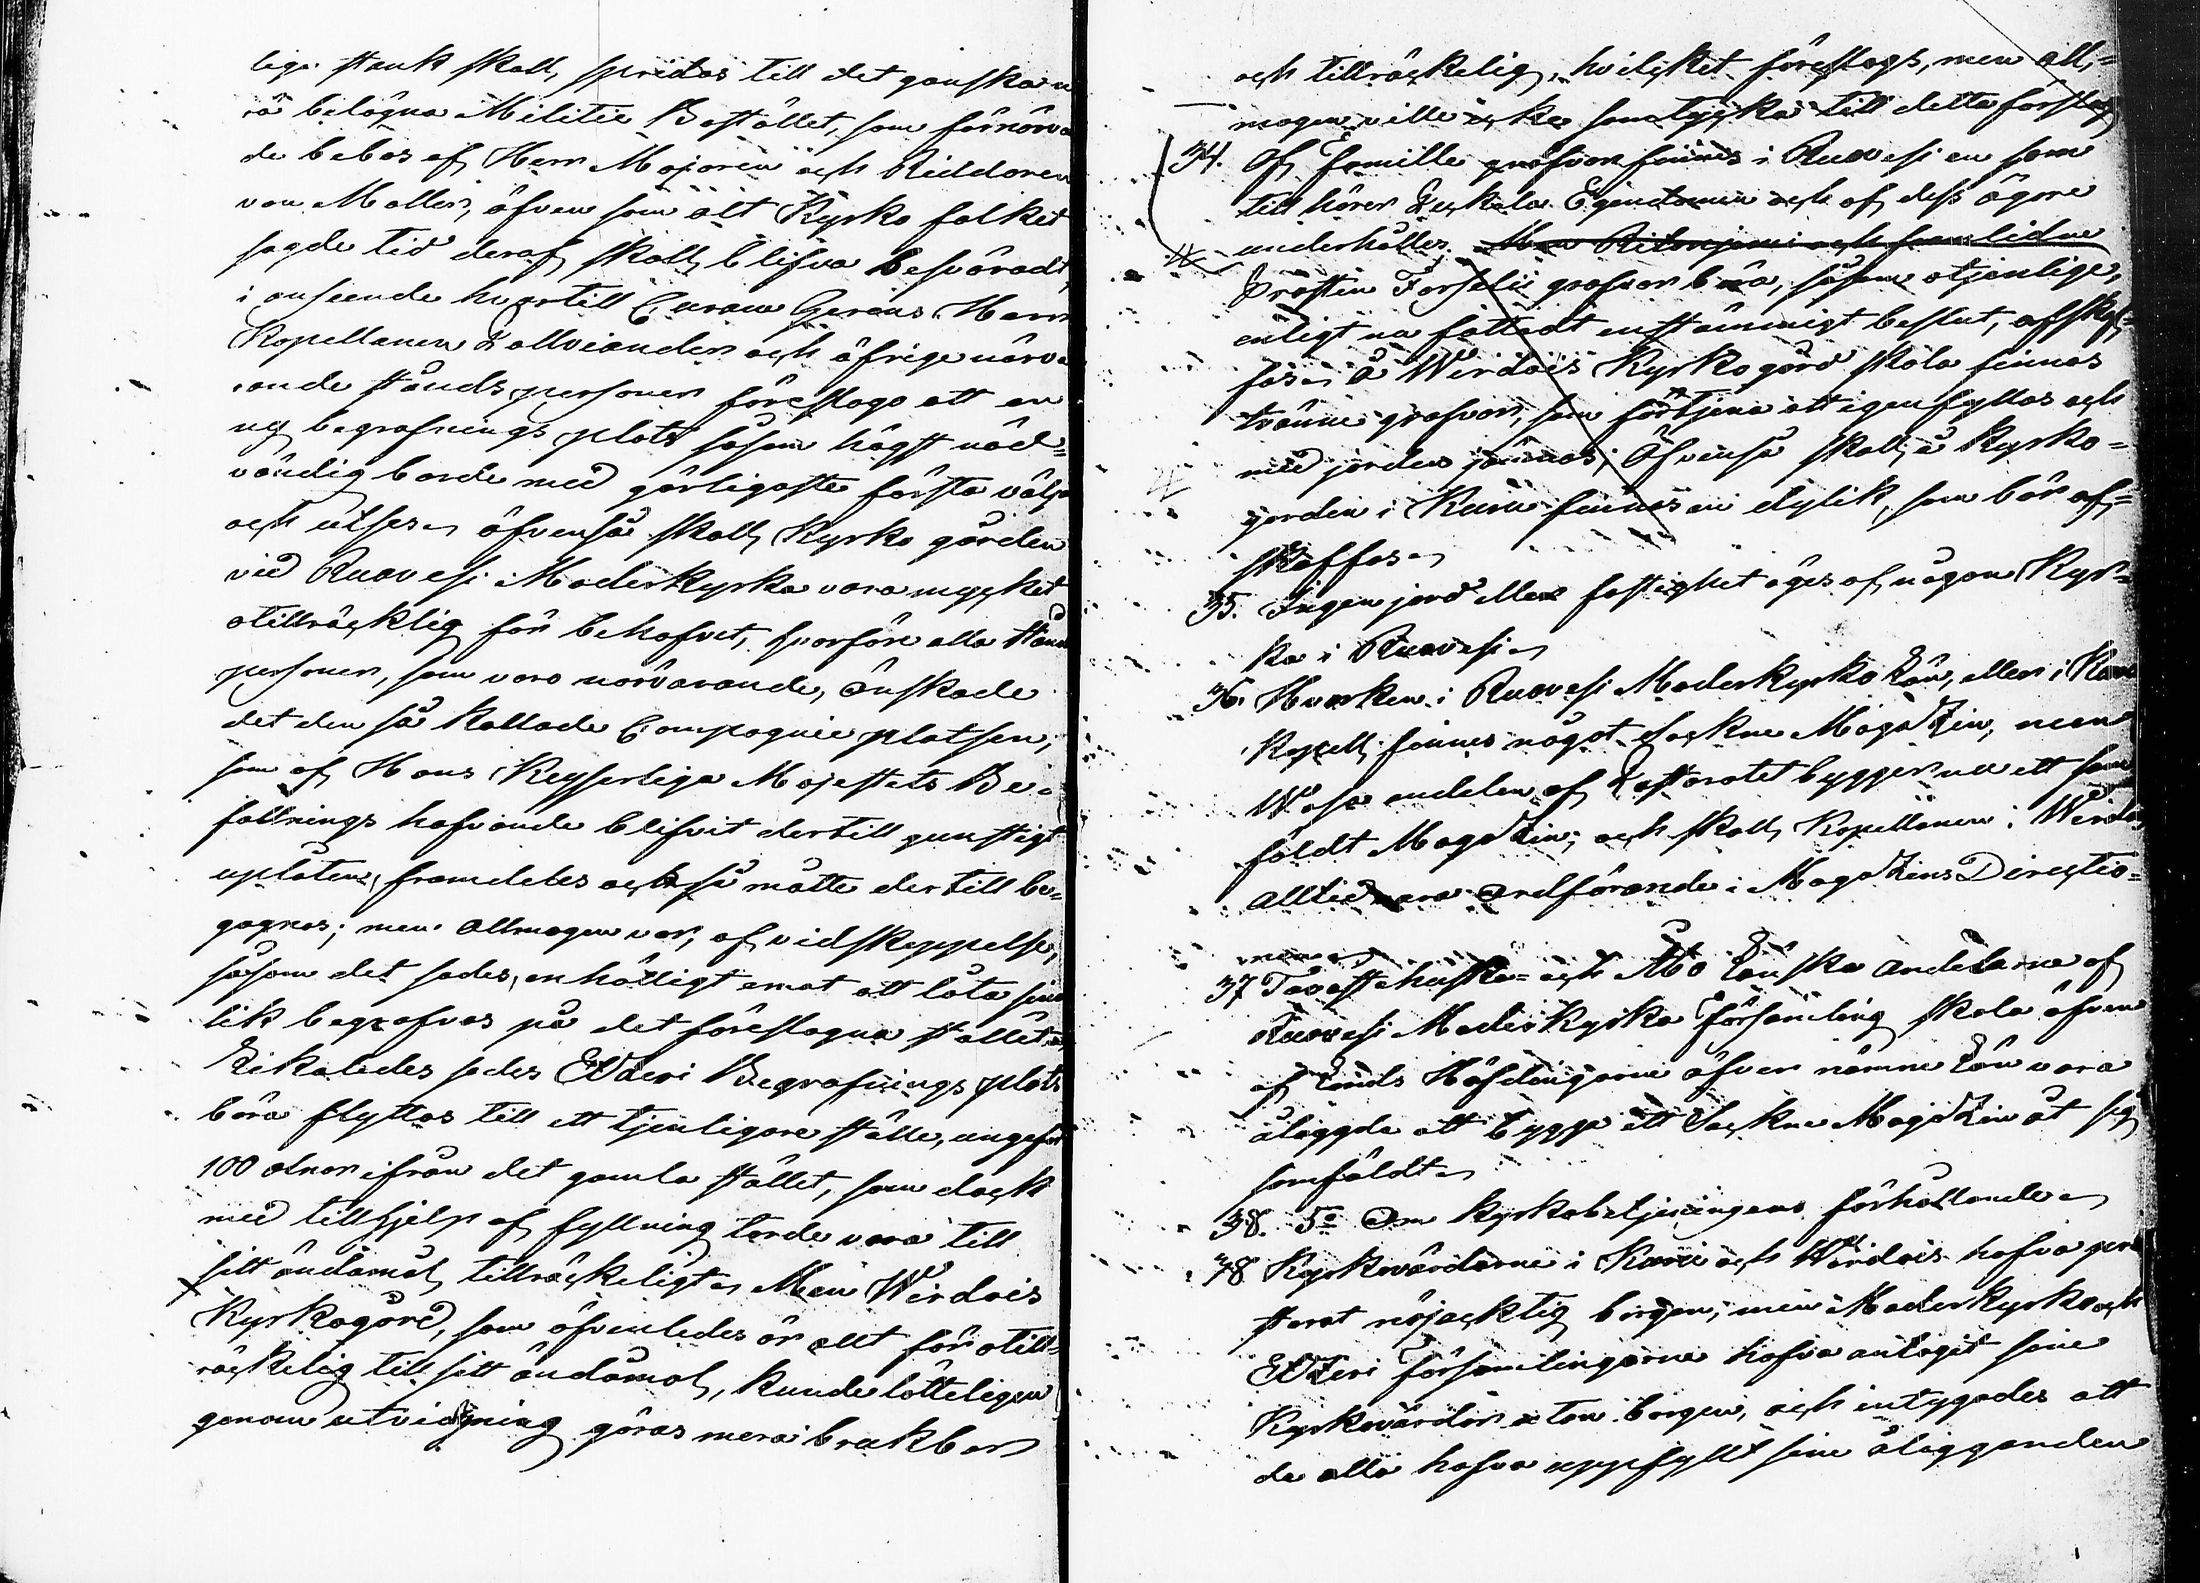 lige stank skall spridas till det ganska n
rä belägna Militie Bostället, som förnärva
de bebos af Herr Majoren och Riddaren
von Möller, äfven som alt Kyrko folket
sagde tid deraf skall blifva besväradt,
i anseende hvartill Curam Gerens Herr
Kapellanen Lallviander och öfrige närva
rande ståndspersoner föreslogo att en
ny begrafnings plats såsom högst nöd=
vändig borde med görligaste första väljas
och utses. äfvenså skall Kyrko gården
vid Ruovesi Moderkyrka vara mycket
otillräcklig för behofvet, hvarföre alla stånds
personer, som voro närvarande, önskade
det den så kallade Compagnie platsen,
som af Hans Keyserliga Majestets Be=
fallnings hafvande blifvit dertill gunstigt
uplåten, framdeles också måtte dertill be=
gagnas; men allmogen var, af vidskeppelse,
såsom det sades, enhälligt emot att låta sina
lik begrafvas på det föreslagna stället.
Likaledes sades Etzeri Begrafnings plats
böra flyttas till ett tjenligare ställe, ungefär
100 alnar ifrån det gamla stället, som dock
med tillhjelp af fyllning torde vara till
sitt ändamål tillräckeligt. Men Wirdois
Kyrkogård, som äfvenledes är allt för otill=
räckelig till sitt ändamål, kunde lätteligen
genom utvidgning göras mera brukbar
och tillräckelig, hvilcket föreslogs, men all=
mogen ville icke samtycka till detta förslag
34. Af Famille grafvar finnes i Ruovesi en som
till hörer Pekkala Egendomen och af dess ägare
underhålles, Men Ritoniemi och framlidne
Prosten Forselii grafvar böra, såsom otjenlige,
enligt nu fattadt enstämmigt beslut, afskaf=
fas. å Wirdois Kyrkogård skola finnas
tvänne grafvar, som förtjena att igenfyllas och
med jorden jämnas; Äfvenså skall å Kyrko=
gården i Kuru finnas en dylik, som bör af=
skaffas.
35. Ingen jord eller fastighet äges af någon Kyr=
ka i Ruovesi.
36. Hvarken i Ruovesi Moderkyrko Län, eller i Kuru
Kapell finnes något Sockne Magazin, men
Wasa andelen af Pastoratet bygger nu ett sam
fäldt Magazin; och skall Kapellanen i Wirdois
alltid vara ordförande i Magazins Directio=
nen.
37 Tavastehuska= och Åbo Länska andelarne af
Ruovesi Moderkyrka Församling skola äfven
af Lands Höfdingarne öfver nämne Län vara
ålaggde att bygga ett Sockne Magazin åt sig
samfäldt.
38. 5º Om kyrkobetjeningens förhållande.
78 Kyrkovärdarne i Kuru och Wirdois hafva pre
sterat nöjacktig borgen; men Moderkyrko och
Etzeri Församlingarne hafva antagit sine
Kyrkovärdar utan borgen, och intygades att
de alla hafva uppfyllt sine åligganden